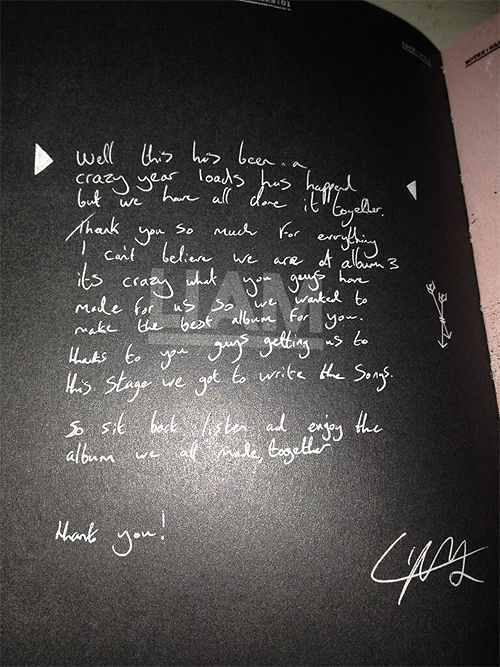 Well this has been a
crazy year loads has happend
but we have all done it together.
Thank you so much for everything
I can't believe we are at album 3
its crazy what you guys have
LIAM
made for us so we wanted to
make the best album for you.
thanks to you guys getting us to
this stage we got to write the songs.
So sit back listen and enjoy the
album we all made, together
thank you!